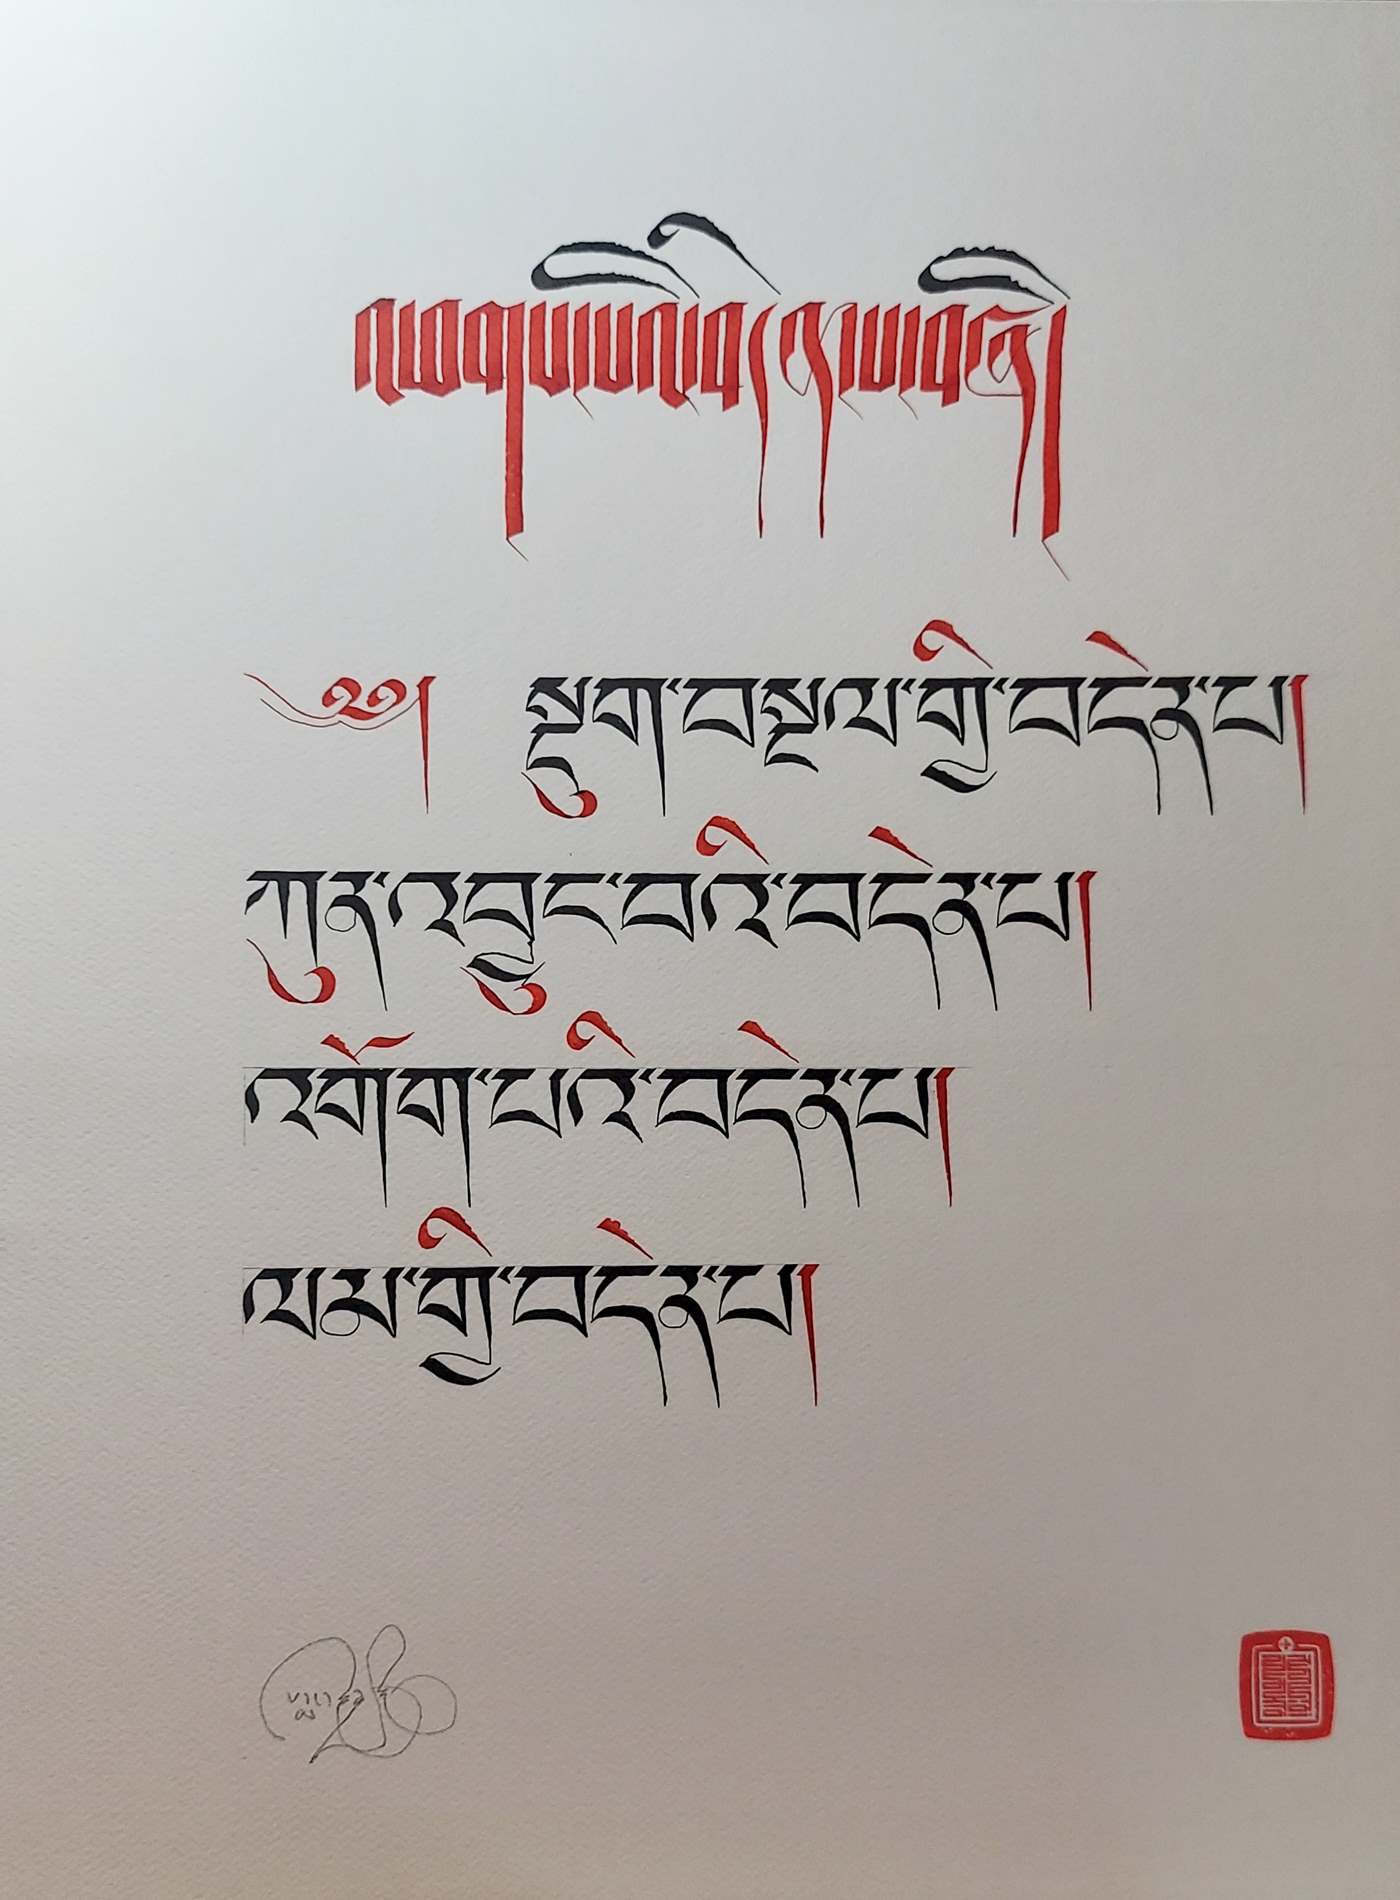 འཕགས་པའི་བདེན་པ་བཞི།
༄༅། སྡུག་བསྔལ་གྱི་བདེན་པ།
ཀུན་འབྱུང་བའི་བདེན་པ།
འགོག་པའི་བདེན་པ།
ལམ་གྱི་བདེན་པ།